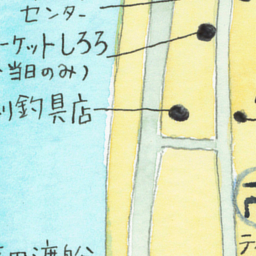 センター
ーケットしろろ
当日のみ)
釣具店
渡船